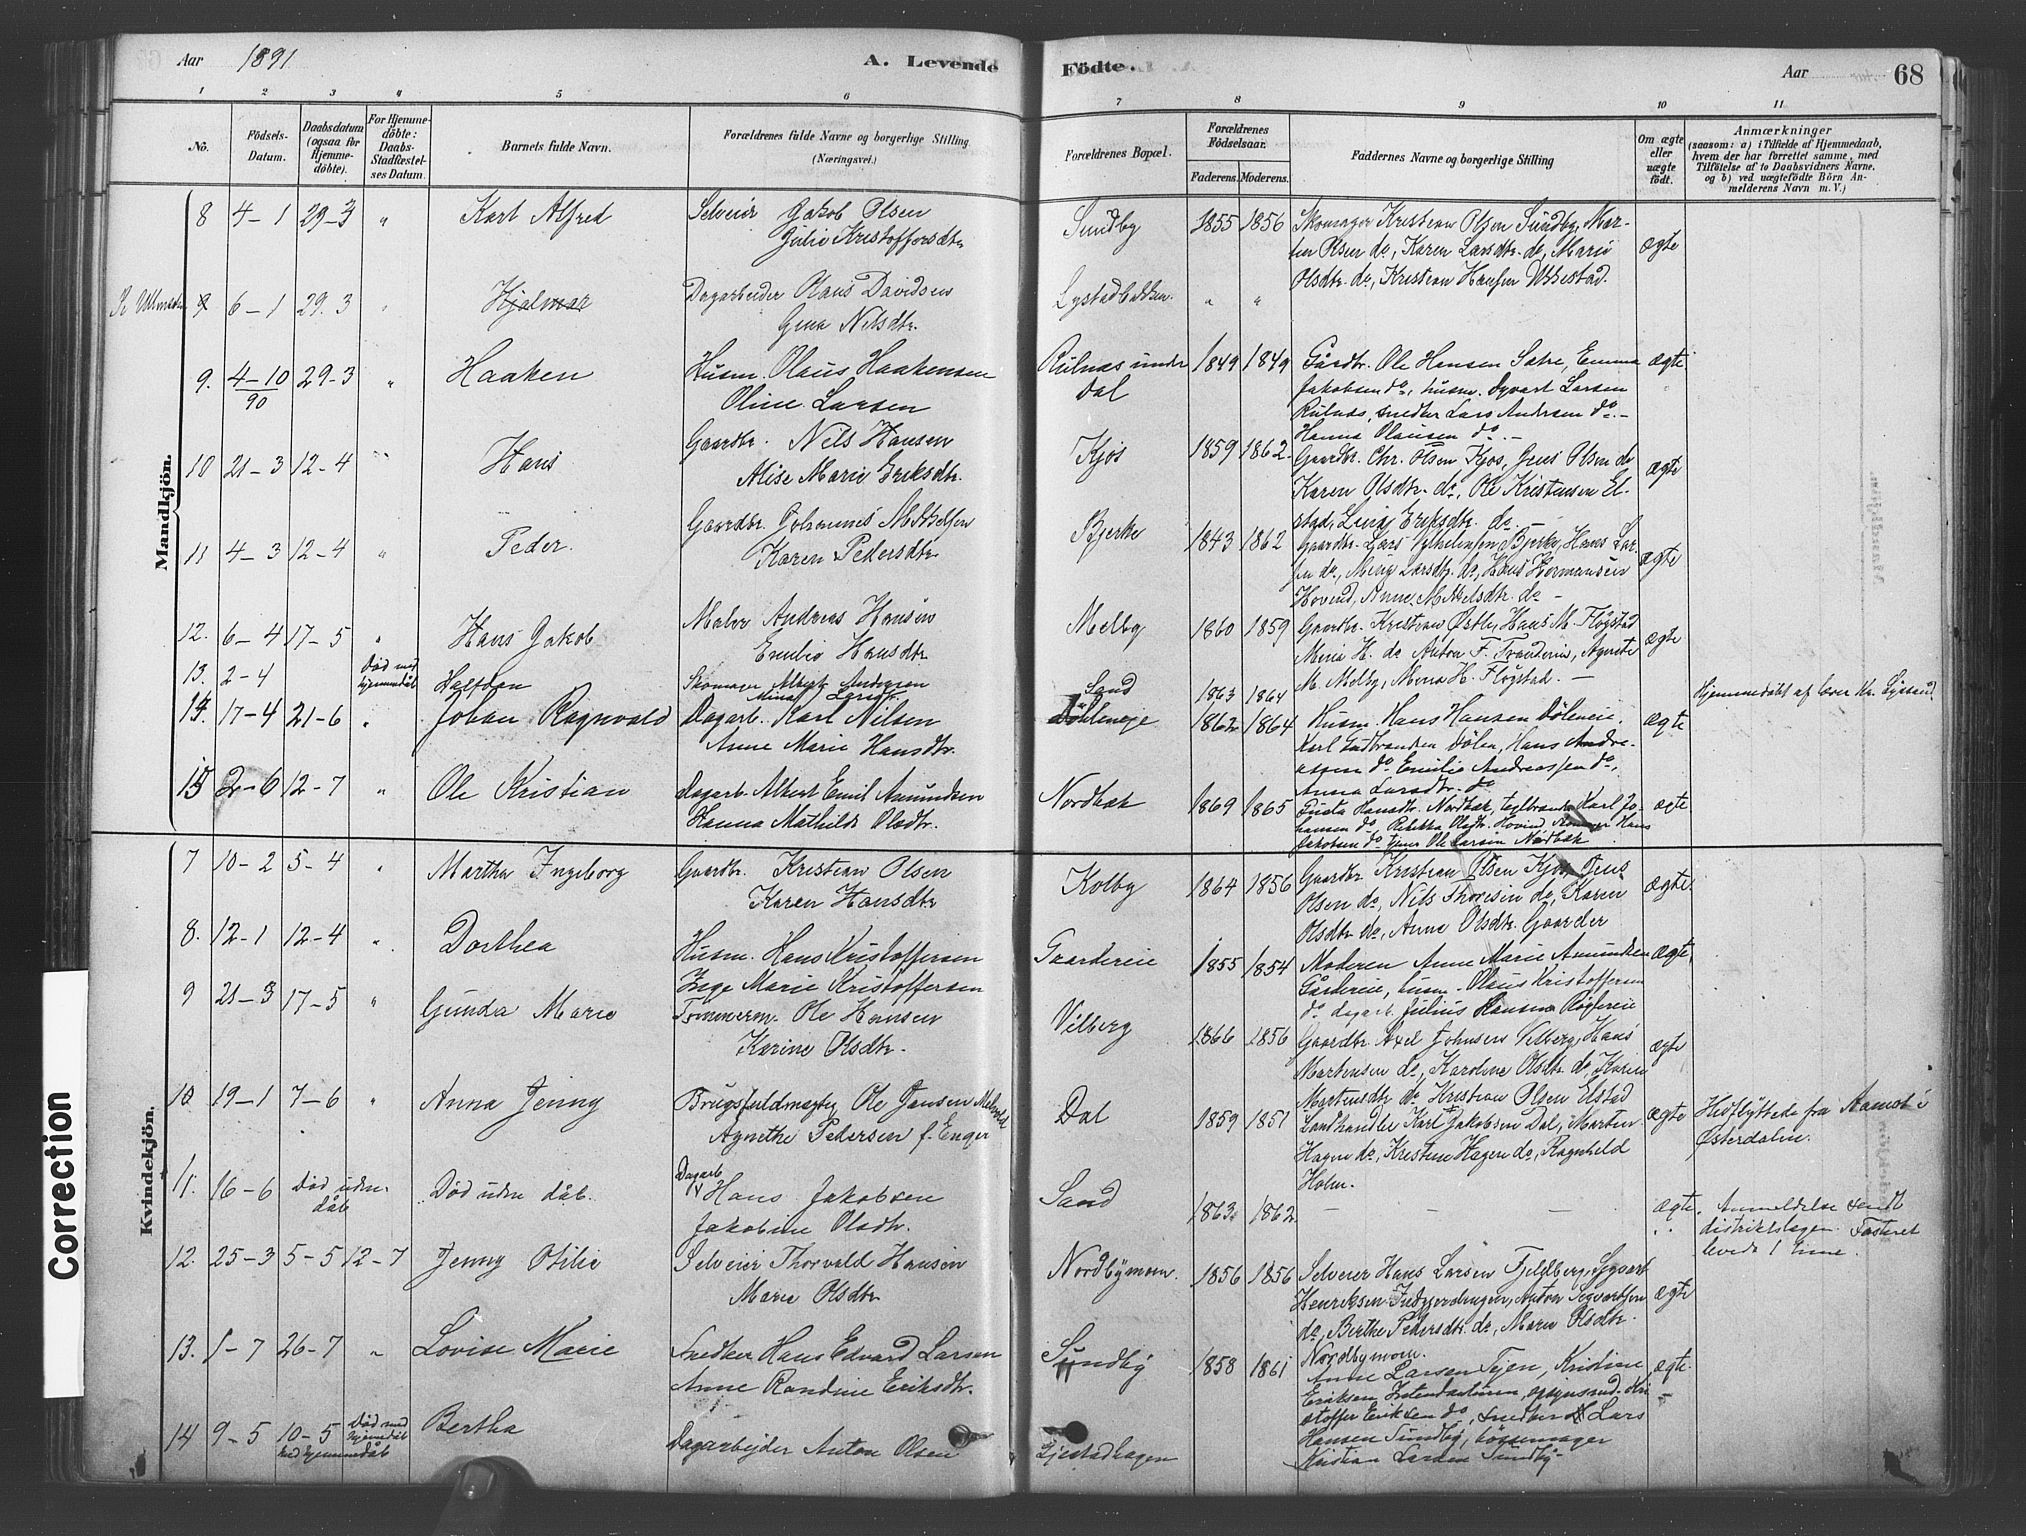 Aar 1891
A. Levende
Födte.
Aar
68
1
2
3
4
5
6
7
8
9
10
11
No.
Födsels-
Datum.
Daabsdatum
(ogsaa for
Hjemme-
döbte).
For Hjemme-
döbte:
Daabs-
Stadfæstel-
ses Datum.
Barnets fulde Navn.
Forældrenes fulde Navne og borgerlige Stilling
(Næringsvei.)
Forældrenes Bopæl.
Forældrenes
Födselsaar.
Faderens.
Moderens.
Faddernes Navne og borgerlige Stilling
Om ægte
eller
uægte
födt.
Anmærkninger
(saasom: a) i Tilfælde af Hjemmedaab,
hvem der har forrettet samme, med
Tilföielse af to Daabsvidners Navne,
og b) ved uægtefödte Börn An-
melderens Navn m. V.)
Mandkjön.
8 4-1 29-3 " Karl Alfred Selveier Jakob Olsen
Julie Kristoffersdtr
Sundby 1855 1856 Skomager Kristian Olsen Sundby, Mar-
tin Olsen do, Karen Larsdtr. do, Marie
Olsdtr. do, Kristian Hansen Ubbestad.
ægte
9 6-1 29.3 " Hjalmar Dagarbeider Olaus Davidsen
Gina Nilsdtr.
Lystadbakken. " "
9. 4-10 29-3 " Haaken Husm. Olaus Haakensen
90
Oline Larsen
Rulnas under
Dal
1849 1849 Gårdbr. Ole Hansen Satre, Emma
Jakobsen do, husm. Syvart Larsen
Rulnas, snedker Lars Andersen do.-
Hanna Olausen do.-
ægte
10 21-3 12-4 " Hans Gaardbr. Nils Hansen
Alise Marie Eriksdtr.
Kjos 1859 1862. Gaardbr. Chr. Olsen Kjos, Jens Olsen do
Karen Olsdtr. do, Ole Kristensen El-
stad, Lina Eriksdtr. do
ægte
11 4-3 12-4 " Peder. Gaardbr. Johannes Mikkelsen
Karen Pedersdtr.
Bjerke 1843 1862 Gaardbr. Lars Bjerke, Hans Lar-
sen do, Larsdtr. do, Hans Hermansen
Hovind, Anne Mikkelsdtr. do -
ægte
12. 6-4 17-5 " Hans Jakob Maler Andreas Hansen
Emilie Hansdtr
Melby 1860 1859 Gaardbr. Kristian Østby, Hans M. Fløgstad
H. do Anton F. Agnete
M. Melby, H. Fløgstad. -
ægte
13. 2-4 Død med
hjemmdåb
Halfdan Skomager Albert Andersen
Larsdtr.
Sand 1863 1864
Hjemmedøbt af lærer Kr. Lystad
14. 17-4 21-6 " Johan Ragnvald Dagarb. Karl Nilsen
Anne Marie Hansdtr.
Døleneje 1862 1864 Husm. Hans Hansen Døleneie.
Karl Gulbrandsen Dølen, Hans Andre-
assen do Emilie Andreassen do,
Anna Larsdtr. do
ægte
15 2-6 12-7 " Ole Kristian Dagarb. Albert Emil Amundsen
Hanna Mathilde Olsdtr.
Nordbak 1869 1865 Gusta Hansdtr. Nordbak, teglbrænder Karl Jo-
hansen do Rebekka Olsdtr. Hovind Hans
Jakobsen do tjener Ole Larsen Nordbak
ægte
Kvindekjön.
7 10-2 5-4 " Martha Ingeborg Gaardbr. Kristian Olsen
Karen Hansdtr
Kolby 1864 1856 Gaardbr Kristian Olsen Kjos, Jens
Olsen do, Nils Thoresen do, Karen
Olsdtr do, Anne Olsdtr. Gaarder
ægte.
8. 12-1 12-4 " Dorthea Husm. Hans Kristoffersen
Inge Marie Kristoffersen
Gaardereie 1855 1854 Moderen Anne Marie Amundsen
Gårdereie, husm. Olaus Kristoffersen
do dagarb Julius Hansen Røglereie
ægte
9 21-3 17-5 " Gunda Marie Tømmerm. Ole Hansen
Karine Olsdtr.
Vilberg 1866 1856 Gaardbr Axel Johnsen Vilberg, Hans
Martensen do, Karoline Olsdtr do, Karen
Martensdtr do, Kristian Olsen Elstad
ægte
10. 19-1 7-6 " Anna Jenny Brugsfuldmægtig Ole Jensen
Agnethe Pedersen f. Enger
Dal 1859 1851 Landhandler Karl Jakobsen Dal, Marten
Hagen do, Kristine Hagen do, Ragnhild
Holm.
ægte
Hidflyttede fra Aamot i
Østerdalen.
11. 16-6 Død uden
dåb
Død uden dåb. Dagarb
Hans Jakobsen
Jakobine Olsdtr.
Sand 1863. 1862 - - - ægte
Anmeldelse sendt
distriktslægen. Fosteret
levede 1 time.
12. 25-3 5-5 12-7 Jenny Otilie Selveier Thorvald Hansen
Marie Olsdtr
Nordbymoen. 1856 1856 Selveier Hans Larsen Fjeldberg, Syvart
Henriksen Anton Syvertsen
do, Berthe Pedersdtr. do, Marie Olsdtr.
Nordbymoen.
ægte
13. 1-7 26-7 " Lovise Marie Snedker Hans Edvard Larsen
Anne Randine Eriksdtr.
Sundby 1858 1861 Anne Larsen Tejen, Kristine
Eriksen Intendanturen, Kri
stoffer Eriksen do, snedker Lars
Hansen Sundby, bøssemager
Kristian Larsen Sundby-
ægte
14 9-5 10-5
ved hjemmedåb
Død med
hjemdåb
Bertha Dagarbejder Anton Olsen
Gjestadhagen
Correction